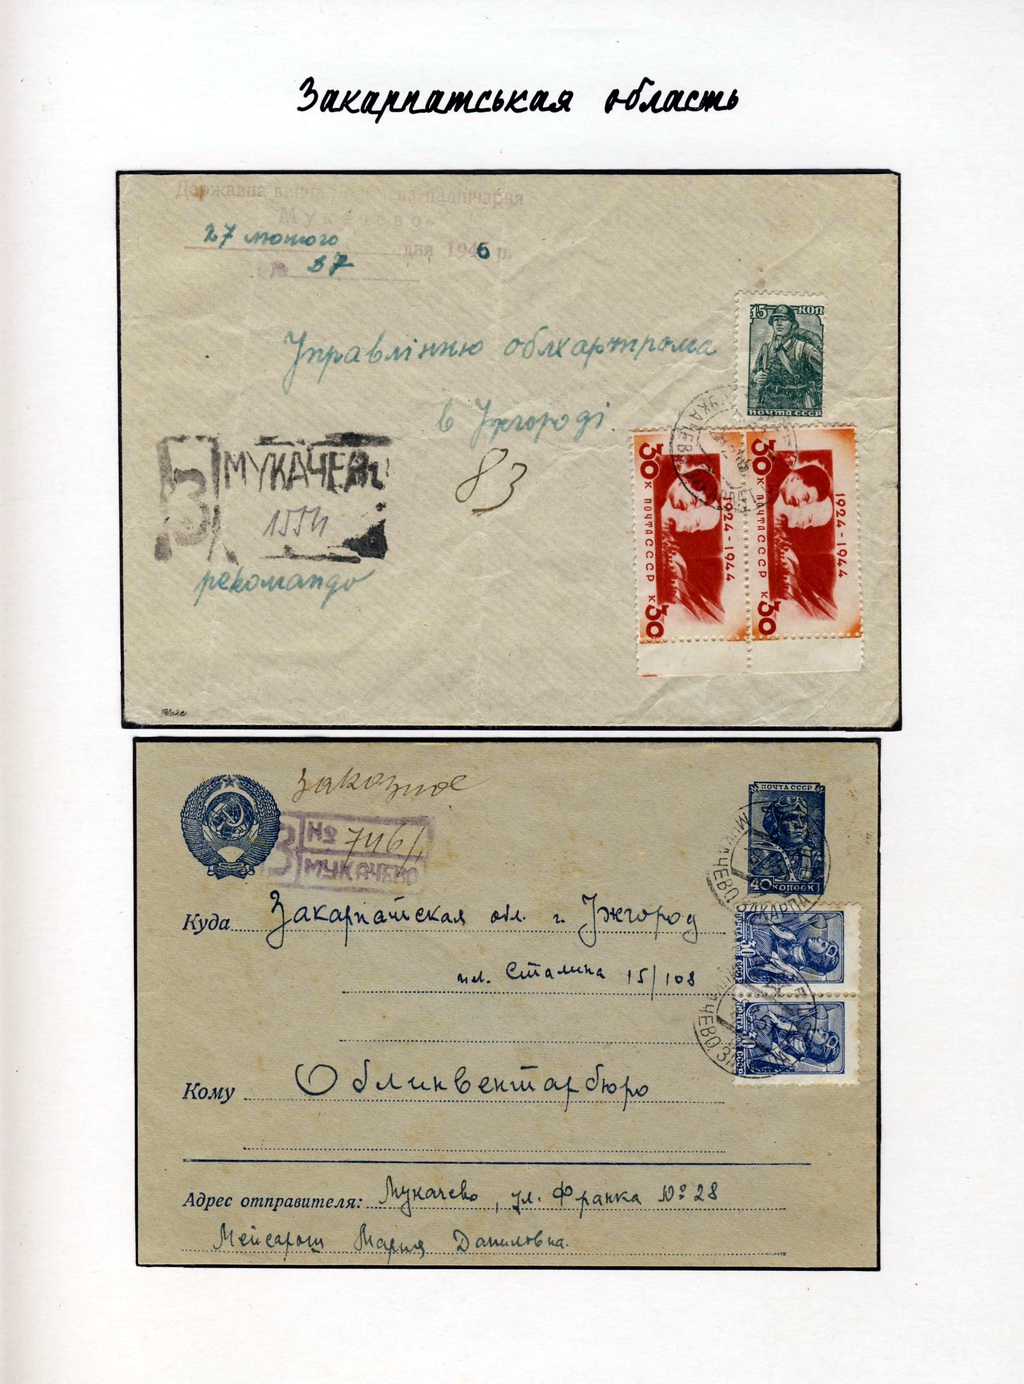 Закарпатськая область
Державна
Мукачево
27 лютого дня 1946 р.
№ 37
15 КОП
Управлінню облхарчпрома
ПОЧТА СССР
в Ужгороді.
83
З МУКАЧЕВО
1554
рекомандо
30 К ПОЧТА СССР К 30
1924-1944
30 К ПОЧТА СССР К 30
1924-1944
заказное
ПОЧТА СССР
З № 746
МУКАЧЕВО
40 КОПЕЕК
МУКАЧЕВО ЗАКАРПА
Куда Закарпатская обл. г. Ужгород
пл. Сталина 15/108
30
ПОЧТА СССР
30
ПОЧТА СССР
МУКАЧЕВО
Кому Облинвентарбюро
Адрес отправителя: Мукачево, ул. Франка № 28
Мейсарош Мария Даниловна.